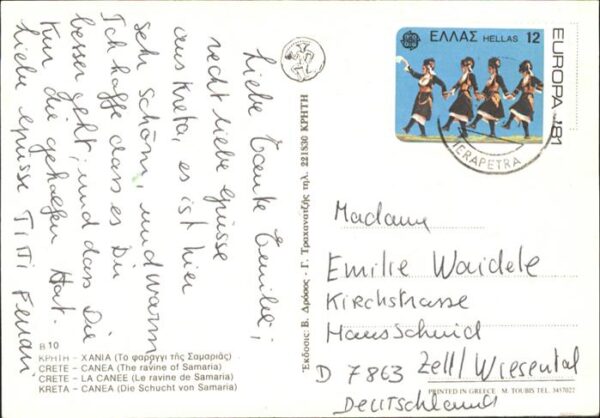 Liebe Tante Emilie;
recht liebe Grüsse
aus Kreta, es ist hier
sehr schön, und warm
Ich hoffe dass es Dir
besser geht; und dass Die
Kur die geholfen Hat.
Liebe Grüsse Titti
B 10
ΚΡΗΤΗ – ΧΑΝΙΑ (Το φαράγγι τής Σαμαριάς)
CRETE – CANEA (The ravine of Samaria)
CRETE – LA CANEE (Le ravine de Samaria)
KRETA – CANEA (Die Schucht von Samaria)
Έκδοσις: Β. Δρόσος - Γ. Τραχανατζής τηλ. 221830 ΚΡΗΤΗ
ΕΛΛΑΣ HELLAS 12
EUROPA '81
IERAPETRA
Madame
Emilie Waidele
Kirchstrasse
Hans Schmid
D 7863 Zell/Wiesental
Deutschland
PRINTED IN GREECE M. TOUBIS TEL. 3457022